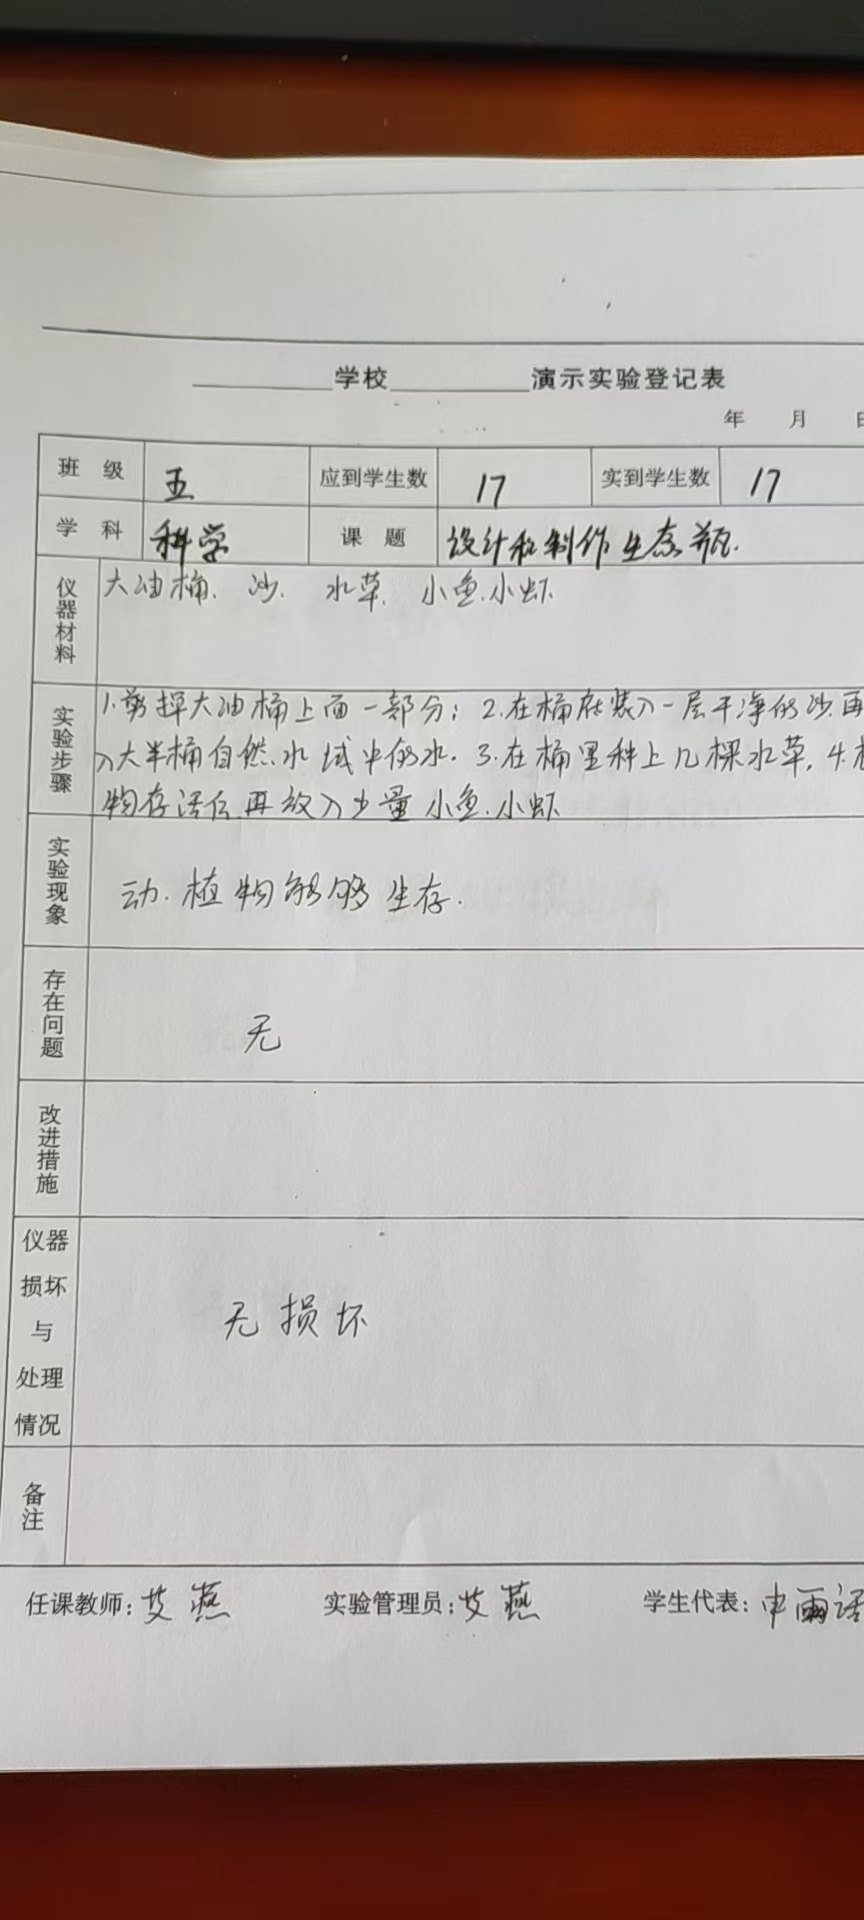 学校 演示实验登记表
年 月 日
班 级 五 应到学生数 17 实到学生数 17
学 科 科学 课 题 设计和制作生态瓶.
仪器材料 大油桶. 沙. 水草. 小鱼.小虾
实验步骤 1.剪掉大油桶上面一部分; 2.在桶底装入一层干净的沙.再
入大半桶自然水域中的水. 3.在桶里种上几棵水草. 4.
物存活后再放入少量小鱼.小虾
实验现象 动.植物能够生存.
存在问题 无
改进措施
仪器损坏与处理情况 无损坏
备注
任课教师:艾燕 实验管理员:艾燕 学生代表:申雨